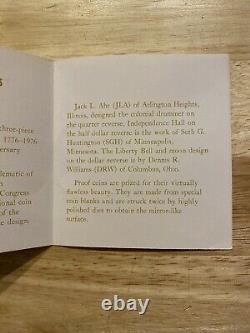 S
three-piece
1776-1976
versary
lematic of
Congress
tional coin
of the
e design.
Jack L. Ahr (JLA) of Arlington Heights,
Illinois, designed the colonial drummer on
the quarter reverse. Independence Hall on
the half dollar reverse is the work of Seth G.
Huntington (SGH) of Minneapolis,
Minnesota. The Liberty Bell and moon design
on the dollar reverse is by Dennis R.
Williams (DRW) of Columbus, Ohio.
Proof coins are prized for their virtually
flawless beauty. They are made from special
coin blanks and are struck twice by highly
polished dies to obtain the mirror-like
surface.